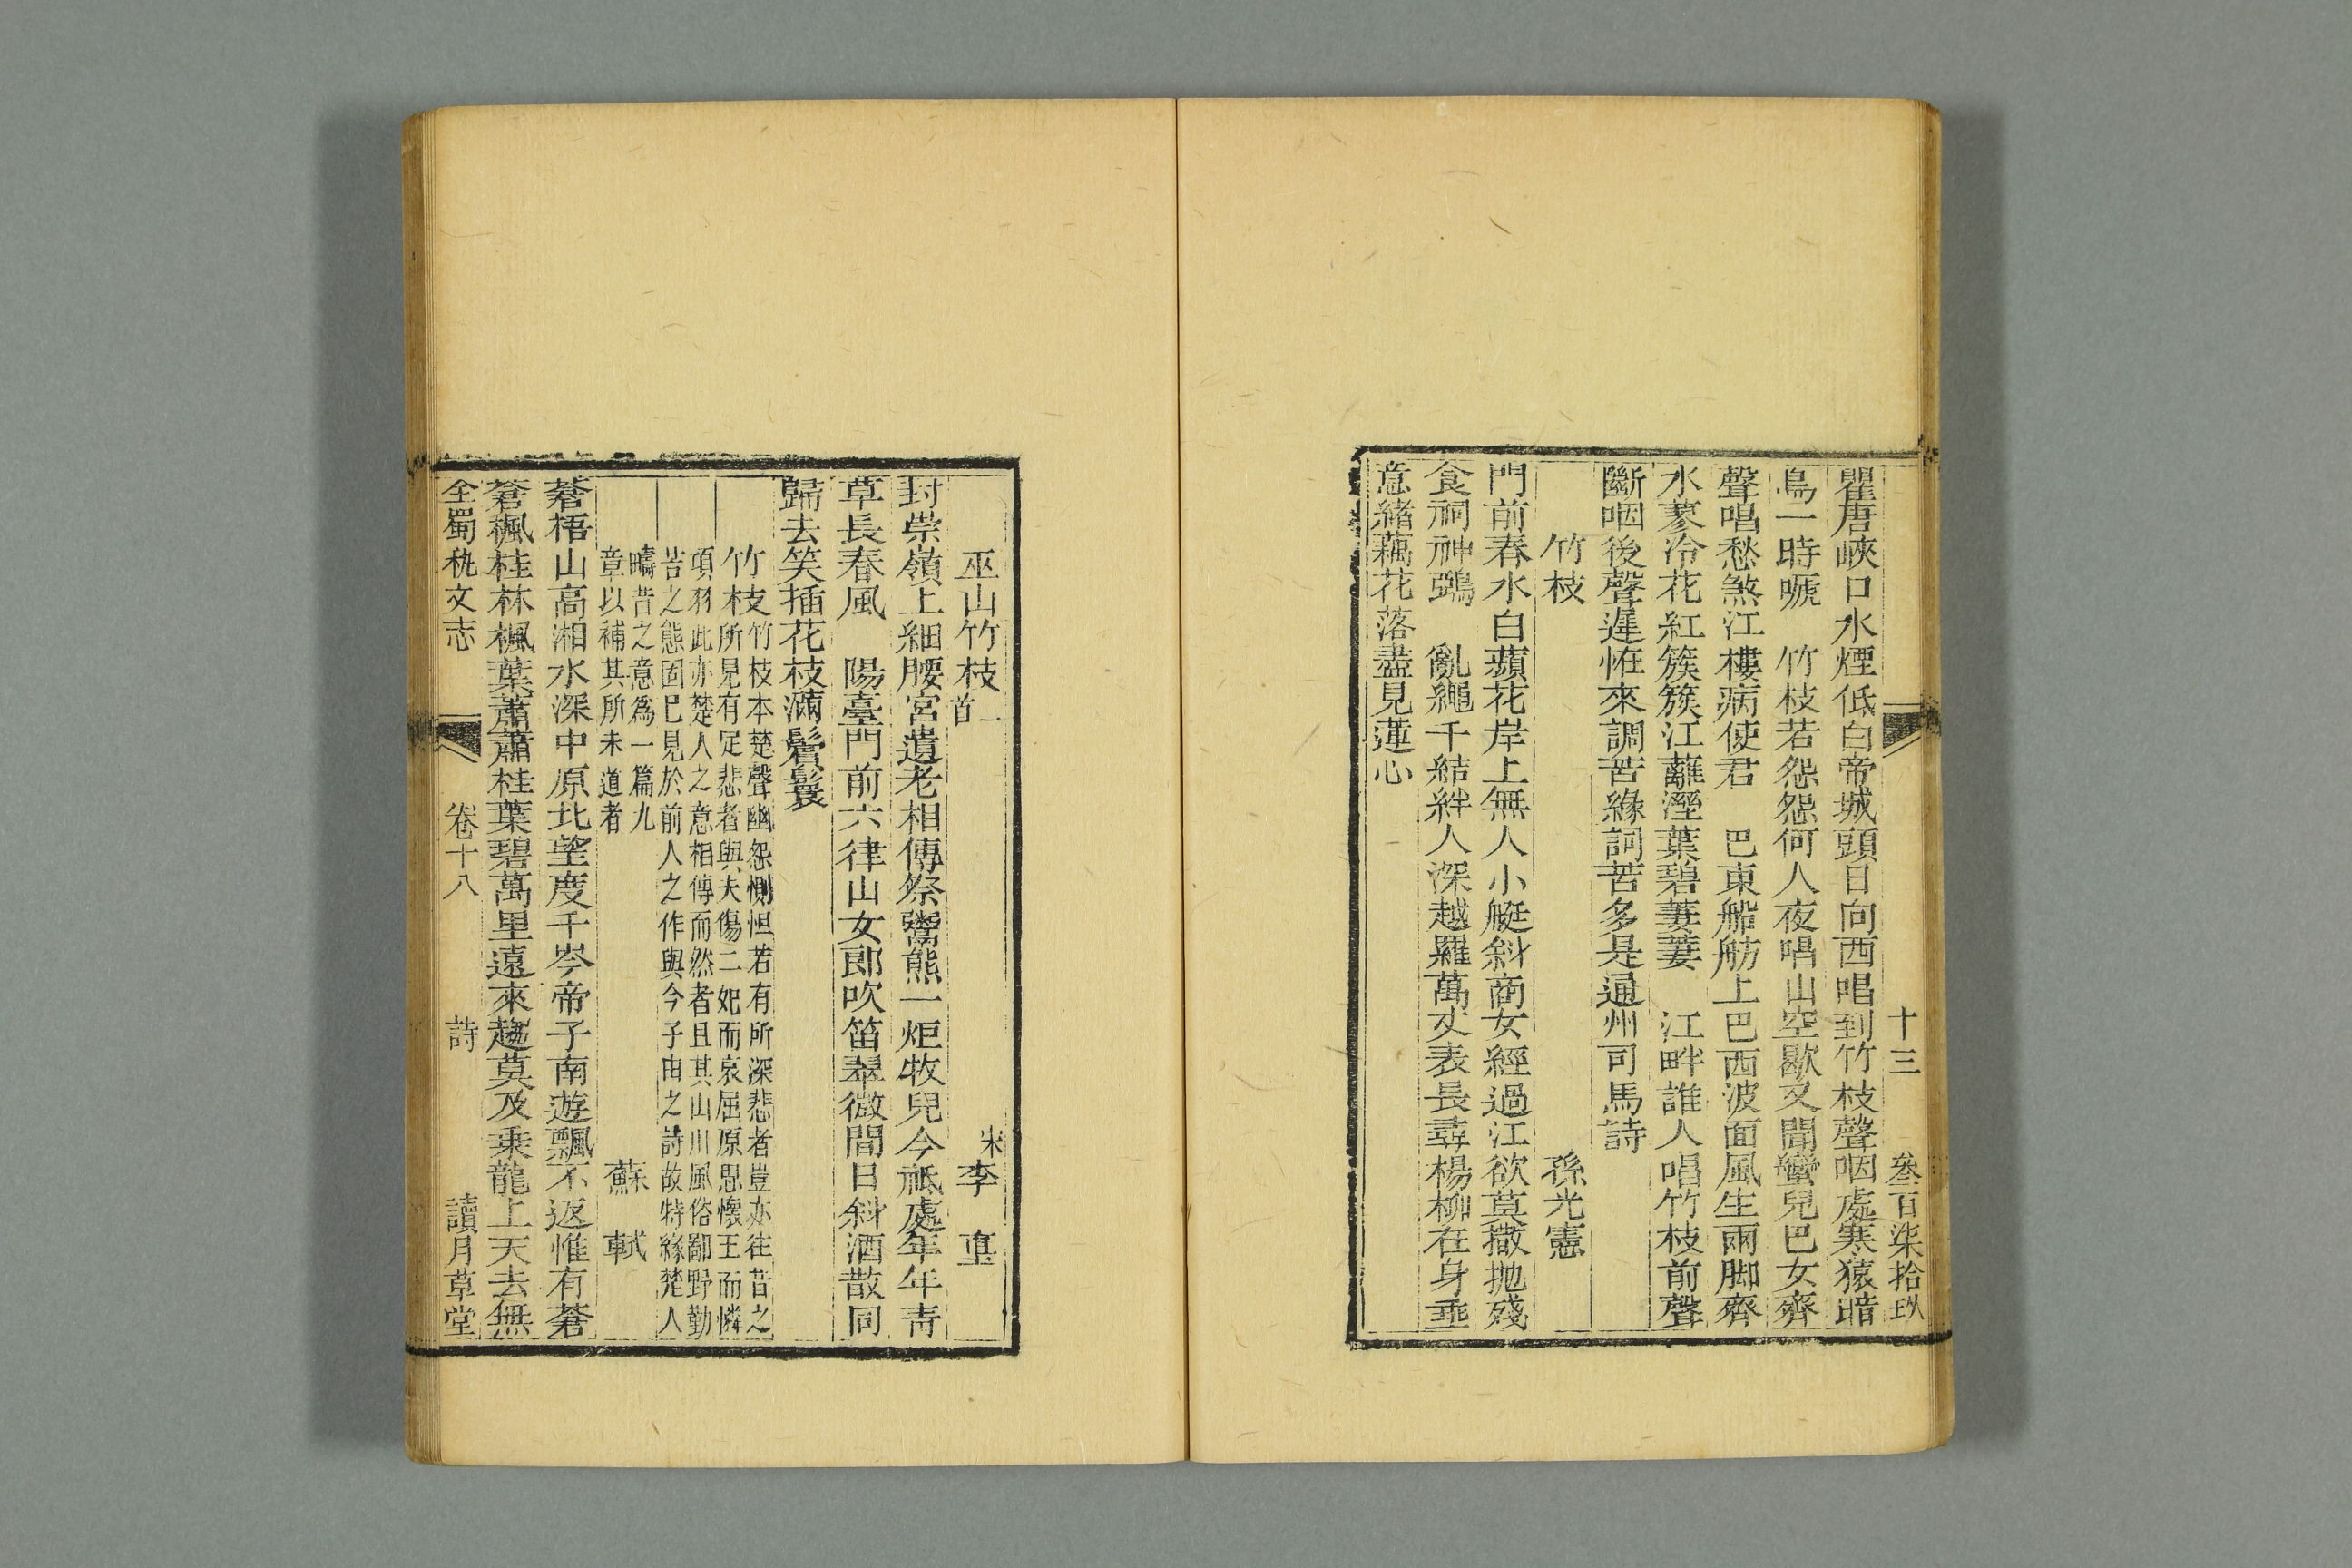 十三 叄百柒拾玖
瞿唐峽口水煙低白帝城頭日向西唱到竹枝聲咽處寒猿暗
鳥一時嗁 竹枝若怨怨何人夜唱山空歇又聞蠻兒巴女齊
聲唱愁煞江樓病使君 巴東船舫上巴西波面風生雨脚齊
水蓼冷花紅簇簇江蘺溼葉碧萋萋 江畔誰人唱竹枝前聲
斷咽後聲遲恠來調苦緣詞苦多是通州司馬詩
竹枝 孫光憲
門前春水白蘋花岸上無人小艇斜商女經過江欲莫撒抛殘
食祠神鵶 亂繩千結絆人深越羅萬丈表長尋楊柳在身垂
意緒藕花落盡見蓮心
巫山竹枝一首 宋李𡐛
封崇嶺上細腰宮遺老相傳祭鬻熊一炬牧兒今祗處年年青
草長春風 陽臺門前六律山女郎吹笛翠微間日斜酒散同
歸去笑插花枝滿鬢鬟
竹枝竹枝本楚聲幽怨惻怛若有所深悲者豈亦往昔之
所見有足悲者與夫傷二妃而哀屈原思懷王而憐
項羽此亦楚人之意相傳而然者且其山川風俗鄙野勤
苦之態固已見於前人之作與今子由之詩故特緣楚人
疇昔之意爲一篇九
章以補其所未道者
蘇 軾
蒼梧山高湘水深中原北望度千岑帝子南遊飄不返惟有蒼
蒼楓桂林楓葉蕭蕭桂葉碧萬里遠來超莫及乗龍上天去無
全蜀秇文志 卷十八 詩 讀月草堂